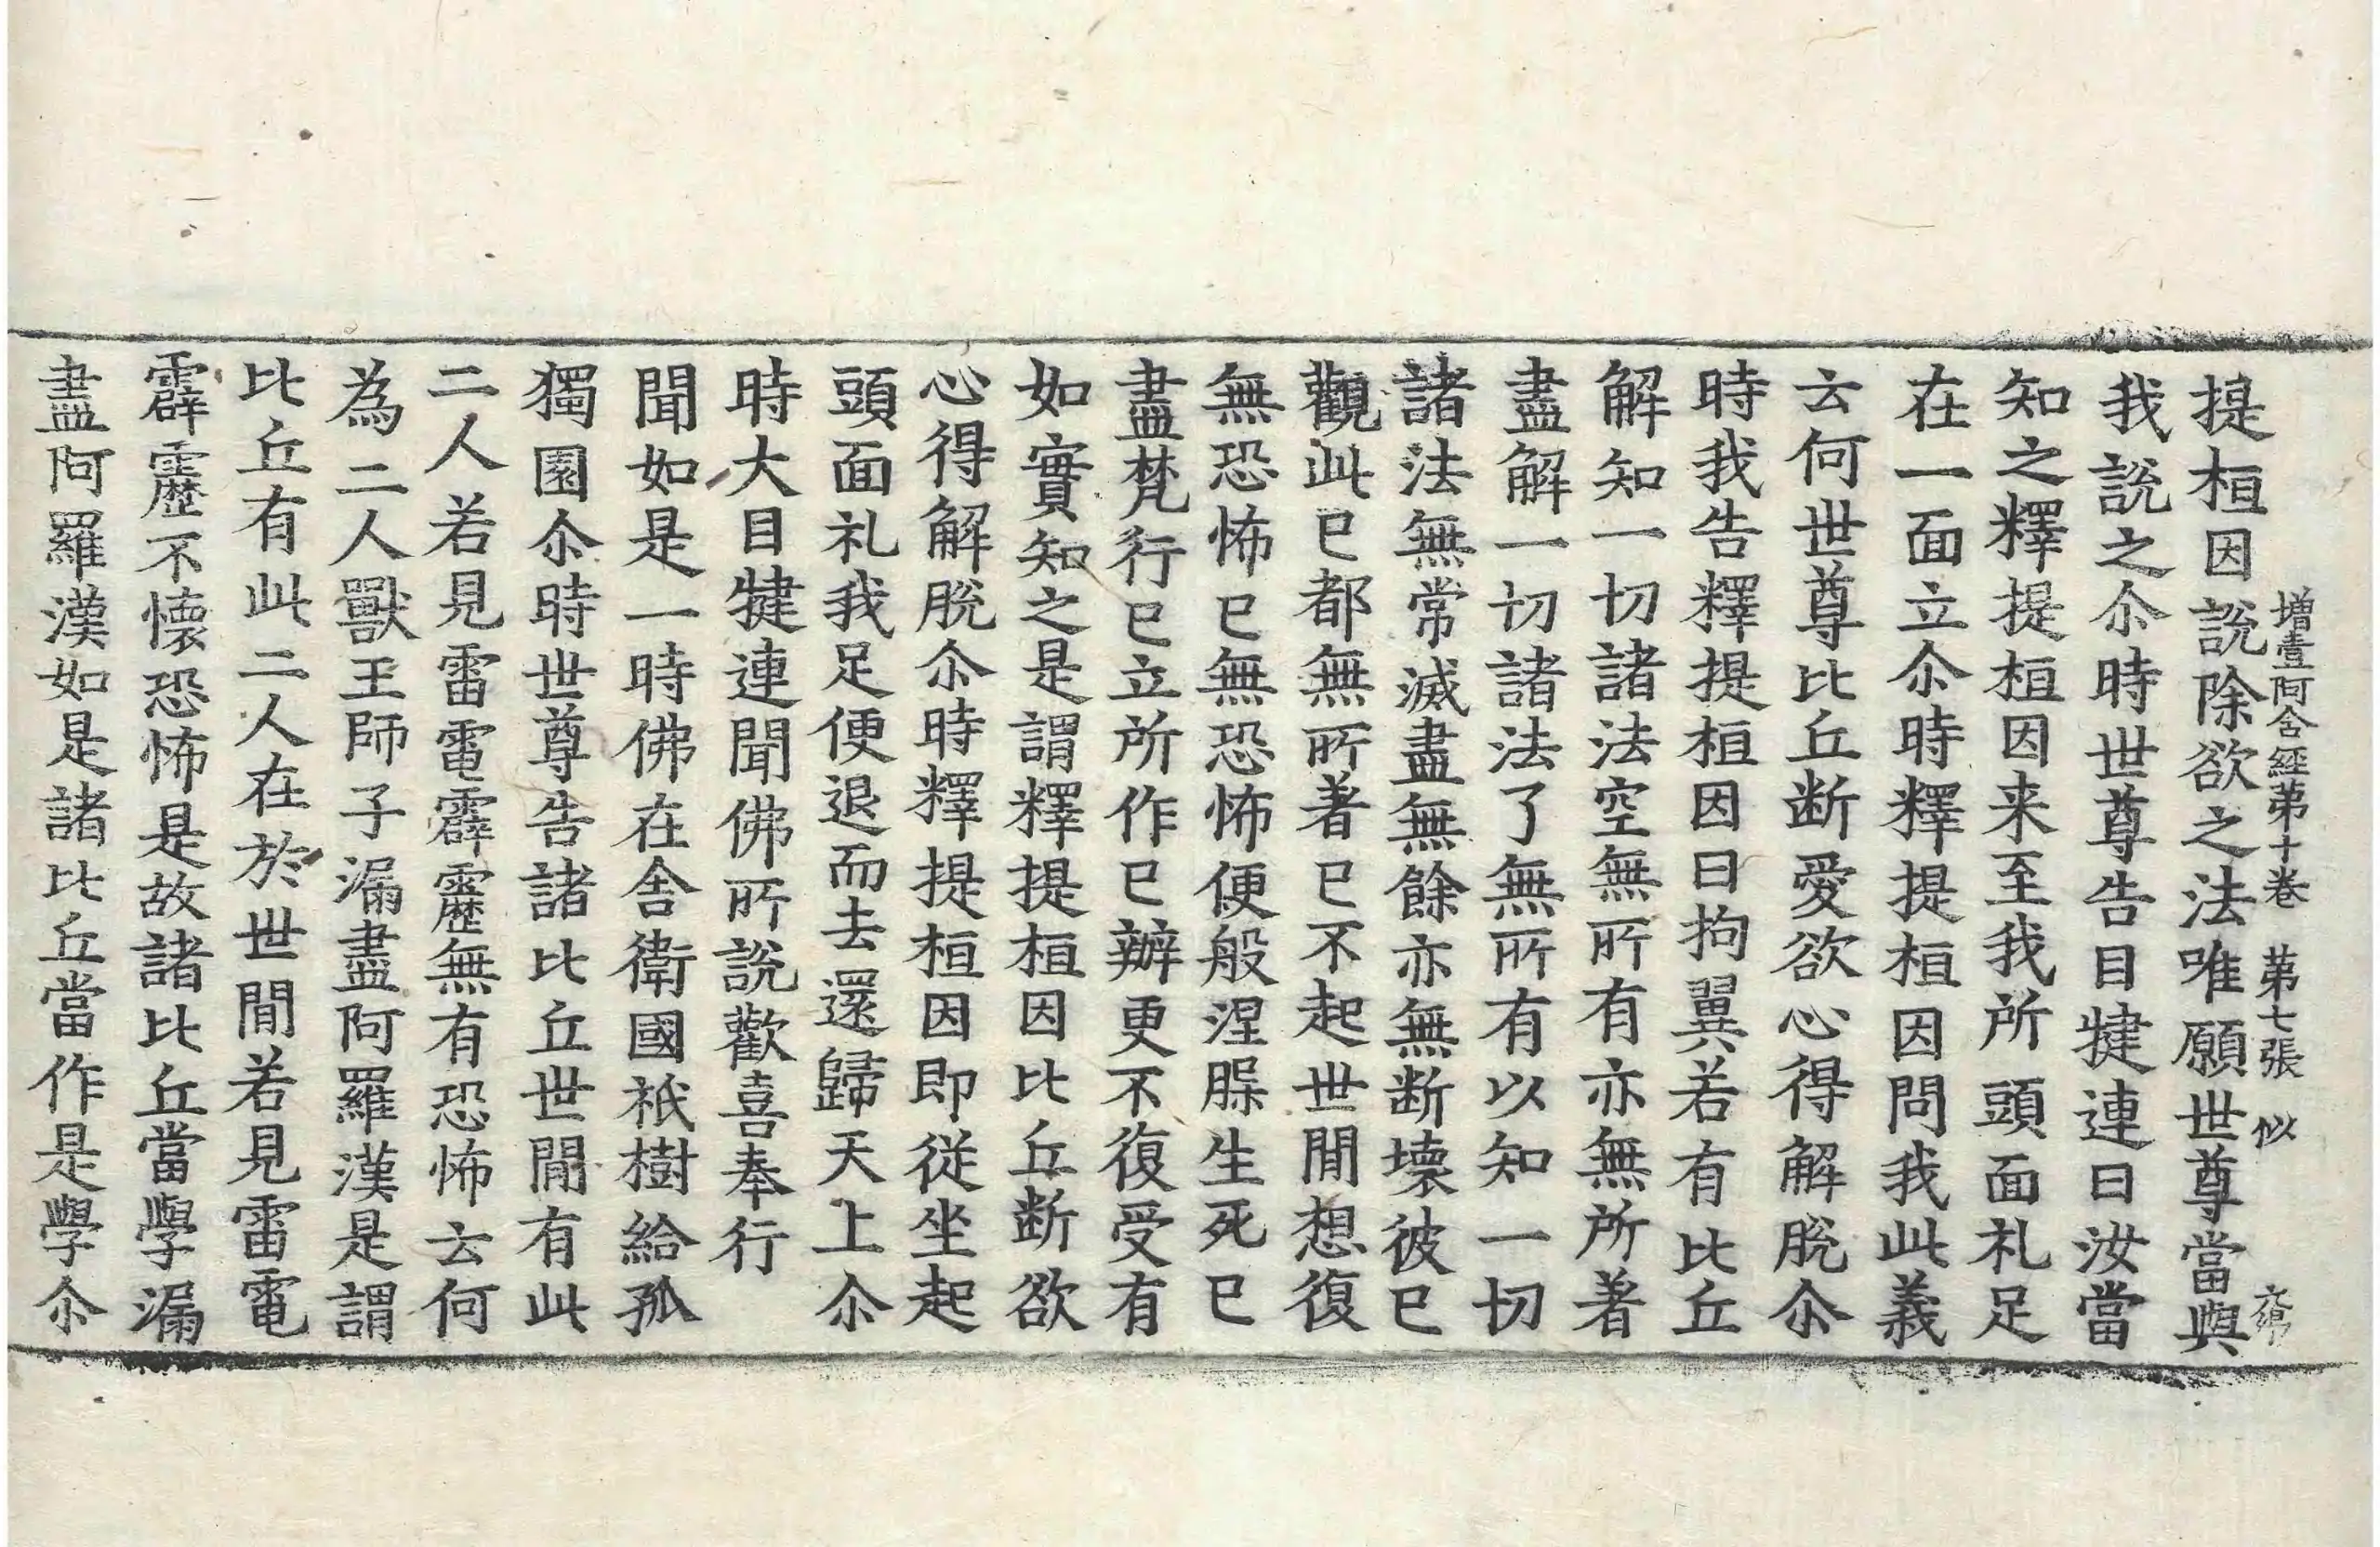 增壹阿含經第十卷 第七張 似
提桓因說除欲之法唯願世尊當與
我說之尒時世尊告目揵連曰汝當
知之釋提桓因来至我所頭面礼足
在一面立尒時釋提桓因問我此義
云何世尊比丘断愛欲心得解脫尒
時我告釋提桓因曰拘翼若有比丘
解知一切諸法空無所有亦無所著
盡解一切諸法了無所有以知一切
諸法無常滅盡無餘亦無断壞彼已
觀此已都無所著已不起世閒想復
無恐怖已無恐怖便般涅槃生死已
盡梵行已立所作已辦更不復受有
如實知之是謂釋提桓因比丘断欲
心得解脫尒時釋提桓因即從坐起
頭面礼我足便退而去還歸天上尒
時大目揵連聞佛所說歡喜奉行
聞如是一時佛在舍衛國祇樹給孤
獨園尒時世尊告諸比丘世閒有此
二人若見雷電霹靂無有恐怖云何
為二人獸王師子漏盡阿羅漢是謂
比丘有此二人在於世閒若見雷電
霹靂不懷恐怖是故諸比丘當學漏
盡阿羅漢如是諸比丘當作是學尒